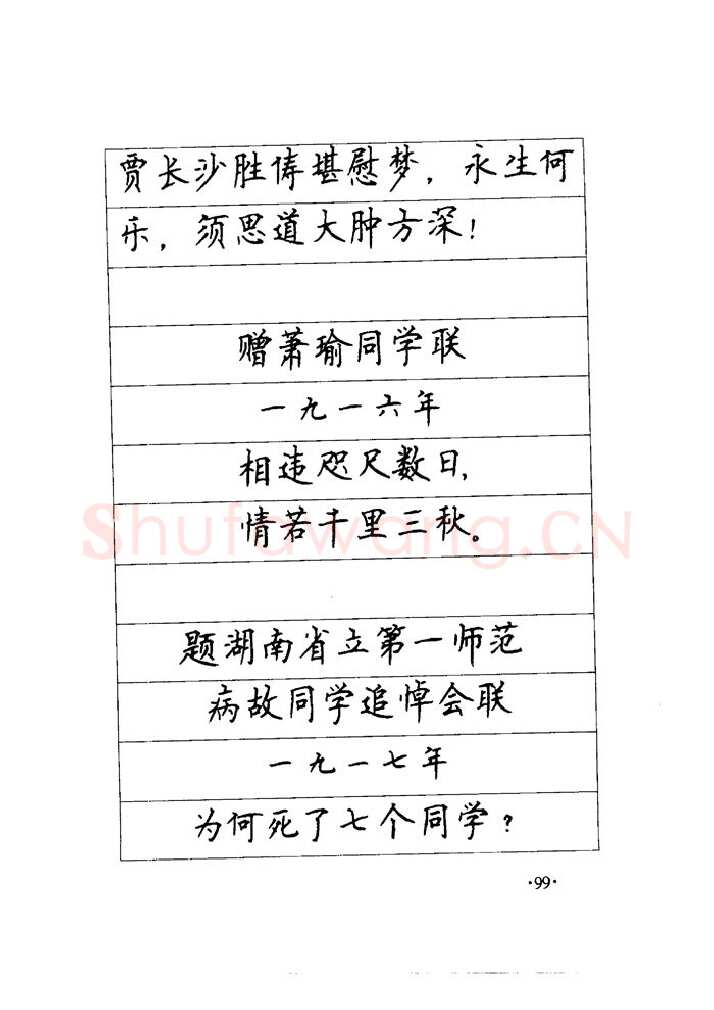 贾长沙胜俦堪慰梦，永生何
乐，须思道大肿方深！
赠萧瑜同学联
一九一六年
相违咫尺数日，
情若千里三秋。
Shufawang.CN
题湖南省立第一师范
病故同学追悼会联
一九一七年
为何死了七个同学？
·99·